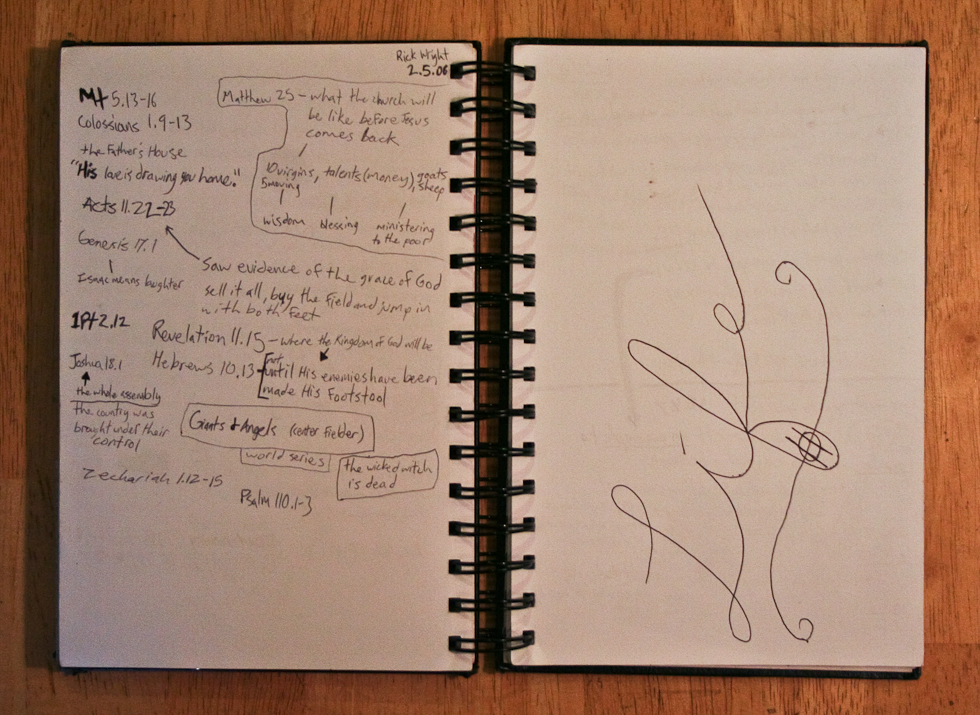 Rick Wright
2.5.06
Mt 5.13-16
Colossians 1.9-13
the Father's House
"His love is drawing you home."
Acts 11.22-23
Genesis 17.1
Isaac means laughter
1 Pt 2.12
Joshua 18.1
the whole assembly
the country was
brought under their
control
Zechariah 1.12-15
Matthew 25 - what the church will
be like before Jesus
comes back
10 virgins, talents (money), goats
, sheep
wisdom blessing ministering
to the poor
Saw evidence of the grace of God
sell it all, buy the field and jump in
with both feet
Revelation 11.15 - where the Kingdom of God will be
Hebrews 10.13 -
until His enemies have been
made His footstool
Giants & Angels (center fielder)
world series
the wicked witch
is dead
Psalm 110.1-3
Life